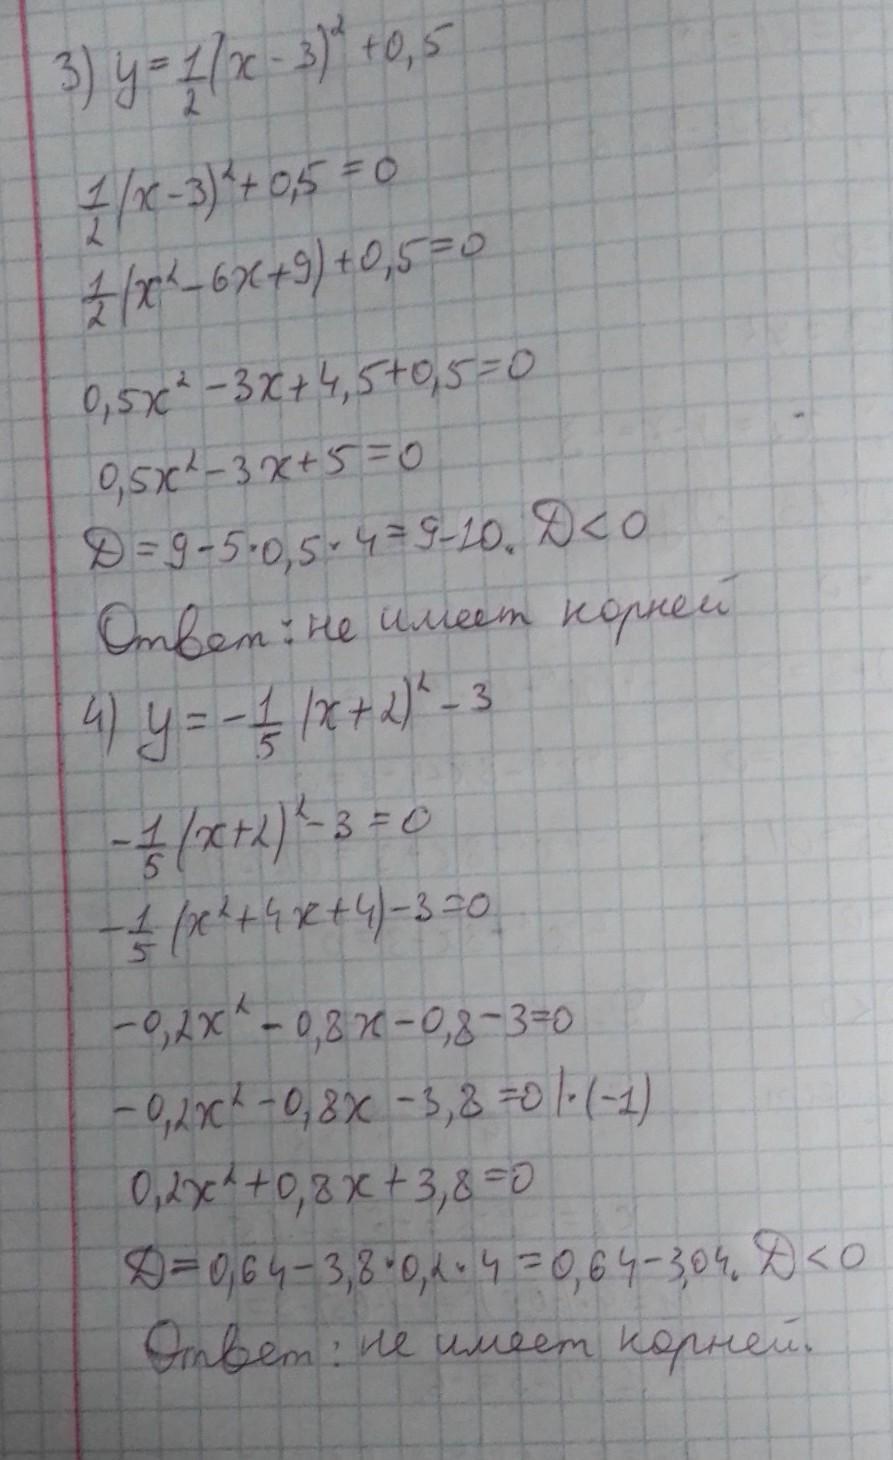 3) y = 1/2 (x - 3)² + 0,5
1/2 (x - 3)² + 0,5 = 0
1/2 (x² - 6x + 9) + 0,5 = 0
0,5x² - 3x + 4,5 + 0,5 = 0
0,5x² - 3x + 5 = 0
D = 9 - 5·0,5·4 = 9 - 10. D < 0
Ответ: не имеет корней
4) y = -1/5 (x + 2)² - 3
-1/5 (x + 2)² - 3 = 0
-1/5 (x² + 4x + 4) - 3 = 0
-0,2x² - 0,8x - 0,8 - 3 = 0
-0,2x² - 0,8x - 3,8 = 0 |·(-1)
0,2x² + 0,8x + 3,8 = 0
D = 0,64 - 3,8·0,2·4 = 0,64 - 3,04. D < 0
Ответ: не имеет корней.